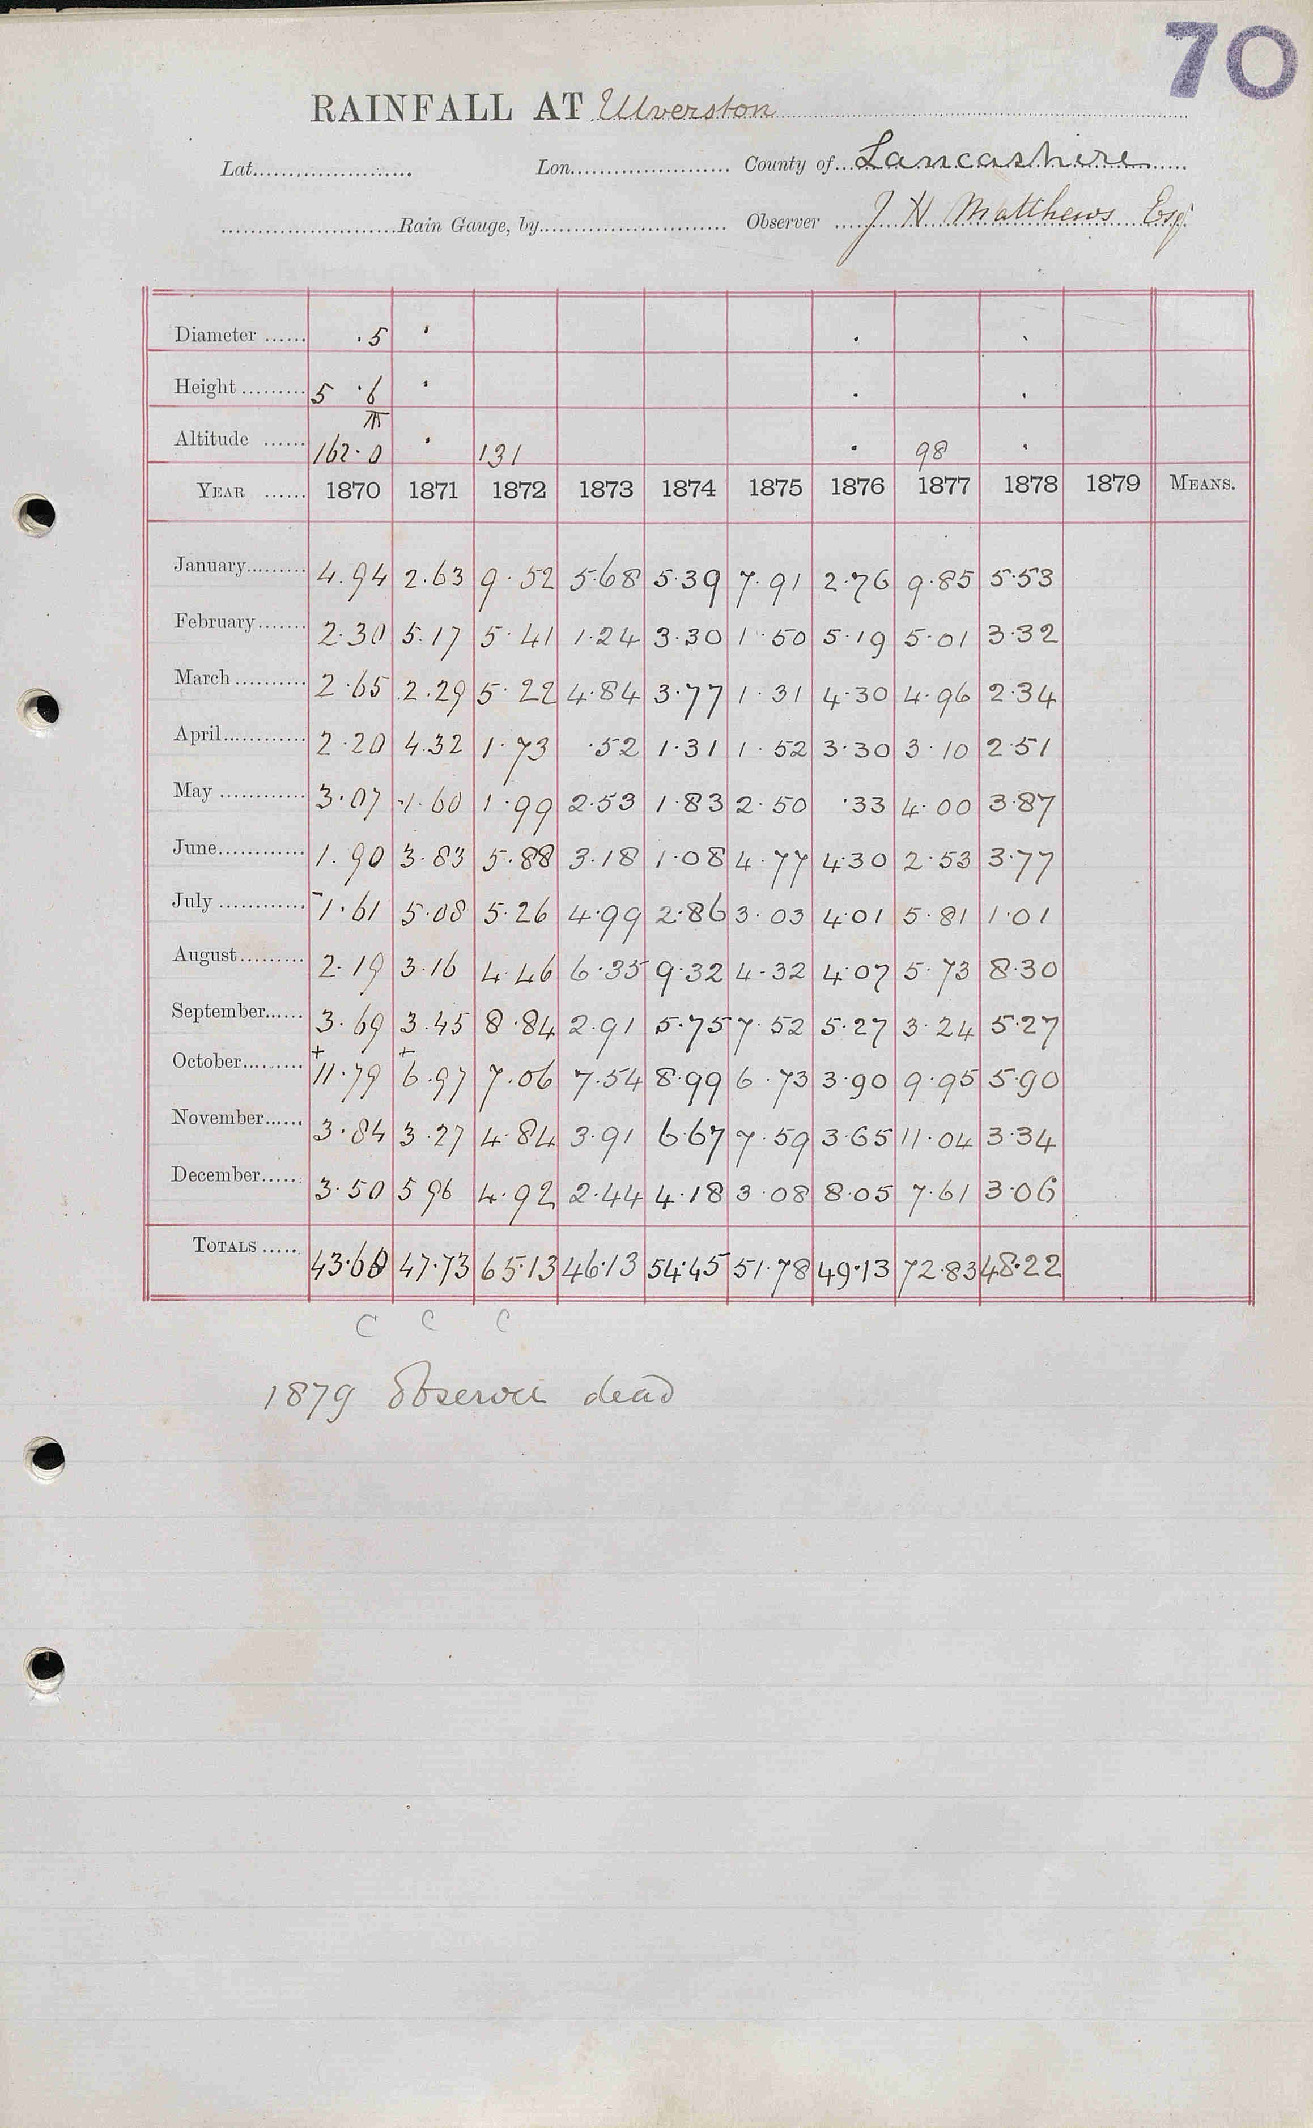 70
RAINFALL AT Ulverston
Lat. Lon. County of Lancashire
Rain Gauge, by Observer J H Matthews Esq
Diameter ·5
Height 5 ·6
Altitude 162·0 131 98
YEAR 1870 1871 1872 1873 1874 1875 1876 1877 1878 1879 MEANS.
January 4.94 2.63 9.52 5.68 5.39 7.91 2.76 9.85 5.53
February 2.30 5.17 5.41 1.24 3.30 1.50 5.19 5.01 3.32
March 2.65 2.29 5.22 4.84 3.77 1.31 4.30 4.96 2.34
April 2.20 4.32 1.73 .52 1.31 1.52 3.30 3.10 2.51
May 3.07 1.60 1.99 2.53 1.83 2.50 .33 4.00 3.87
June 1.90 3.83 5.88 3.18 1.08 4.77 4.30 2.53 3.77
July 1.61 5.08 5.26 4.99 2.86 3.03 4.01 5.81 1.01
August 2.19 3.16 4.46 6.35 9.32 4.32 4.07 5.73 8.30
September 3.69 3.45 8.84 2.91 5.75 7.52 5.27 3.24 5.27
October +11.79 +6.97 7.06 7.54 8.99 6.73 3.90 9.95 5.90
November 3.84 3.27 4.84 3.91 6.67 7.59 3.65 11.04 3.34
December 3.50 5 96 4.92 2.44 4.18 3.08 8.05 7.61 3.06
TOTALS 43.68 47.73 65.13 46.13 54.45 51.78 49.13 72.83 48.22
C C C
1879 Observer dead